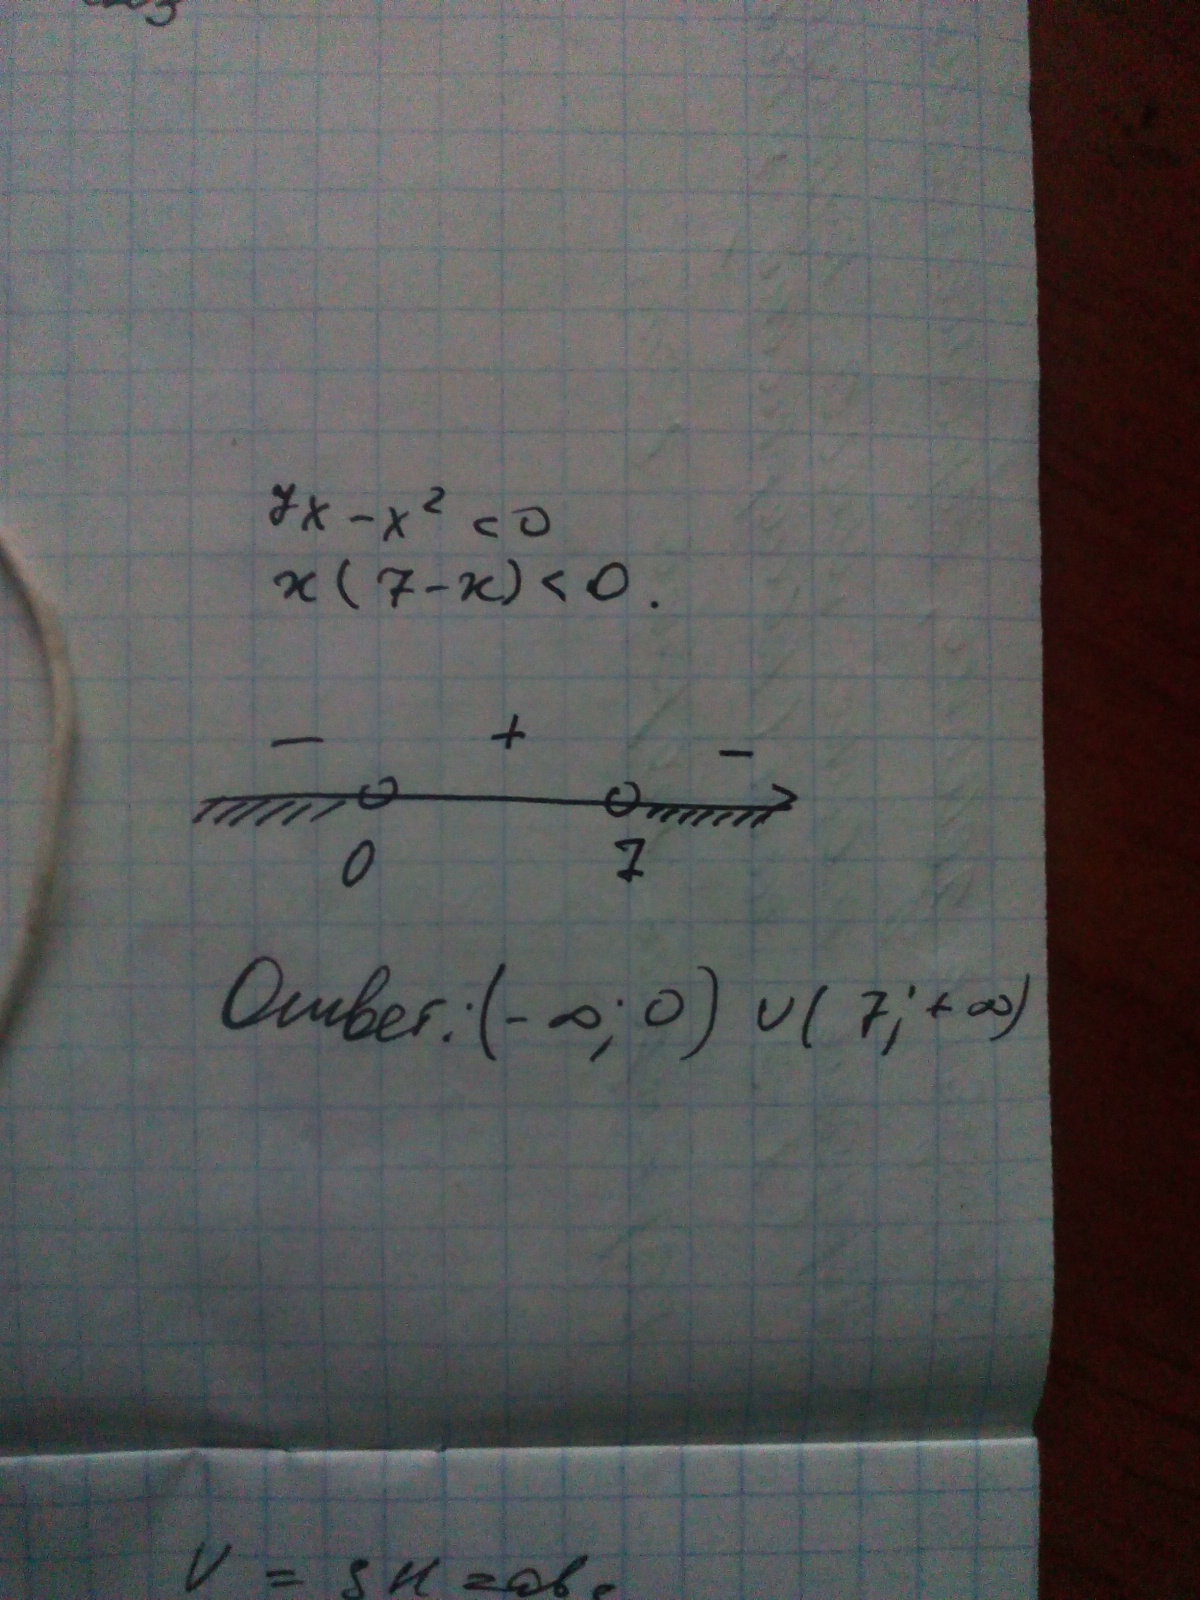 7x - x² < 0
x(7-x) < 0.
− + −
0 7
Ответ: (-∞; 0) ∪ (7; +∞)
V = SH = abc